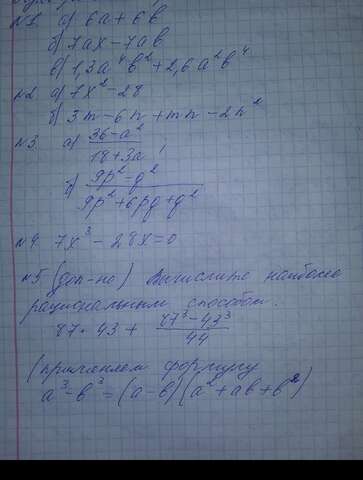 №1 а) 6a + 6b
б) 7ax - 7ab
в) 1,3a⁴b² + 2,6a²b⁴
№2 а) 7x² - 28
б) 3m - 6n + mn - 2n²
№3 а) (36 - a²) / (18 + 3a) ;
б) (9p² - q²) / (9p² + 6pq + q²)
№4. 7x³ - 28x = 0
№5 (доп-но) Вычислите наиболее
рациональным способом:
87 · 43 + (87³ - 43³) / 44
(применяем формулу
a³ - b³ = (a - b)(a² + ab + b²)